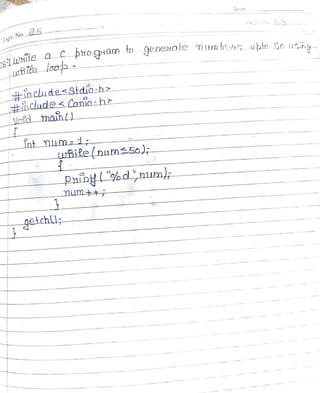 Expt. No. 25
Date
Page No. 23
25) write a c program to generate numbers upto 50 using
while loop.
#include<stdio.h>
#include<Conio.h>
Void main()
{
int num=1;
while(num≤50);
{
Printf("%d",num);
num++;
}
getch();
}